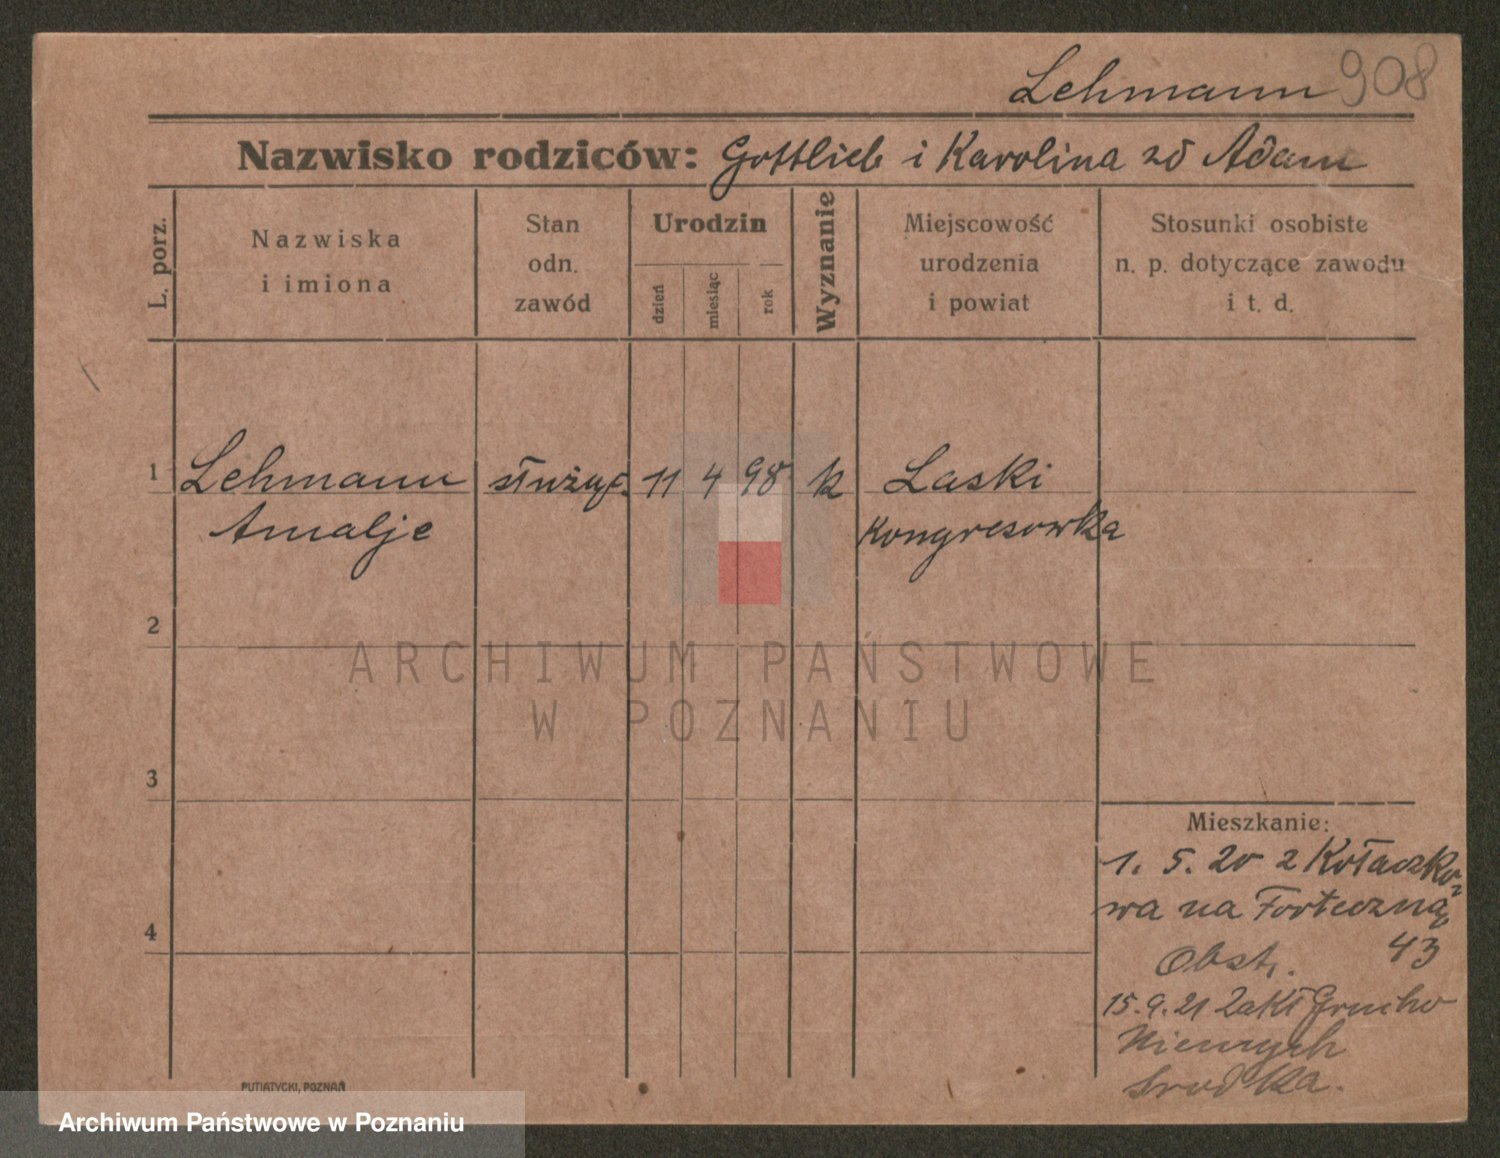 Lehmann 908
Nazwisko rodziców: Gottlieb i Karolina zd Adam
L. porz.
Nazwiska
i imiona
Stan
odn.
zawód
Urodzin
dzień
miesiąc
rok
Wyznanie
Miejscowość
urodzenia
i powiat
Stosunki osobiste
n. p. dotyczące zawodu
i t. d.
1 Lehmann służąc. 11 4 98 k Laski
Amalje Kongresowka
2
ARCHIWUM PAŃSTWOWE
W POZNANIU
3
Mieszkanie:
1. 5. 20 z Kołaczko-
wa na Forteczną
43
4
Obst.
15.9.21 Zakł Grucho
Niemych
Srodka.
PUTIATYCKI, POZNAŃ
Archiwum Państwowe w Poznaniu